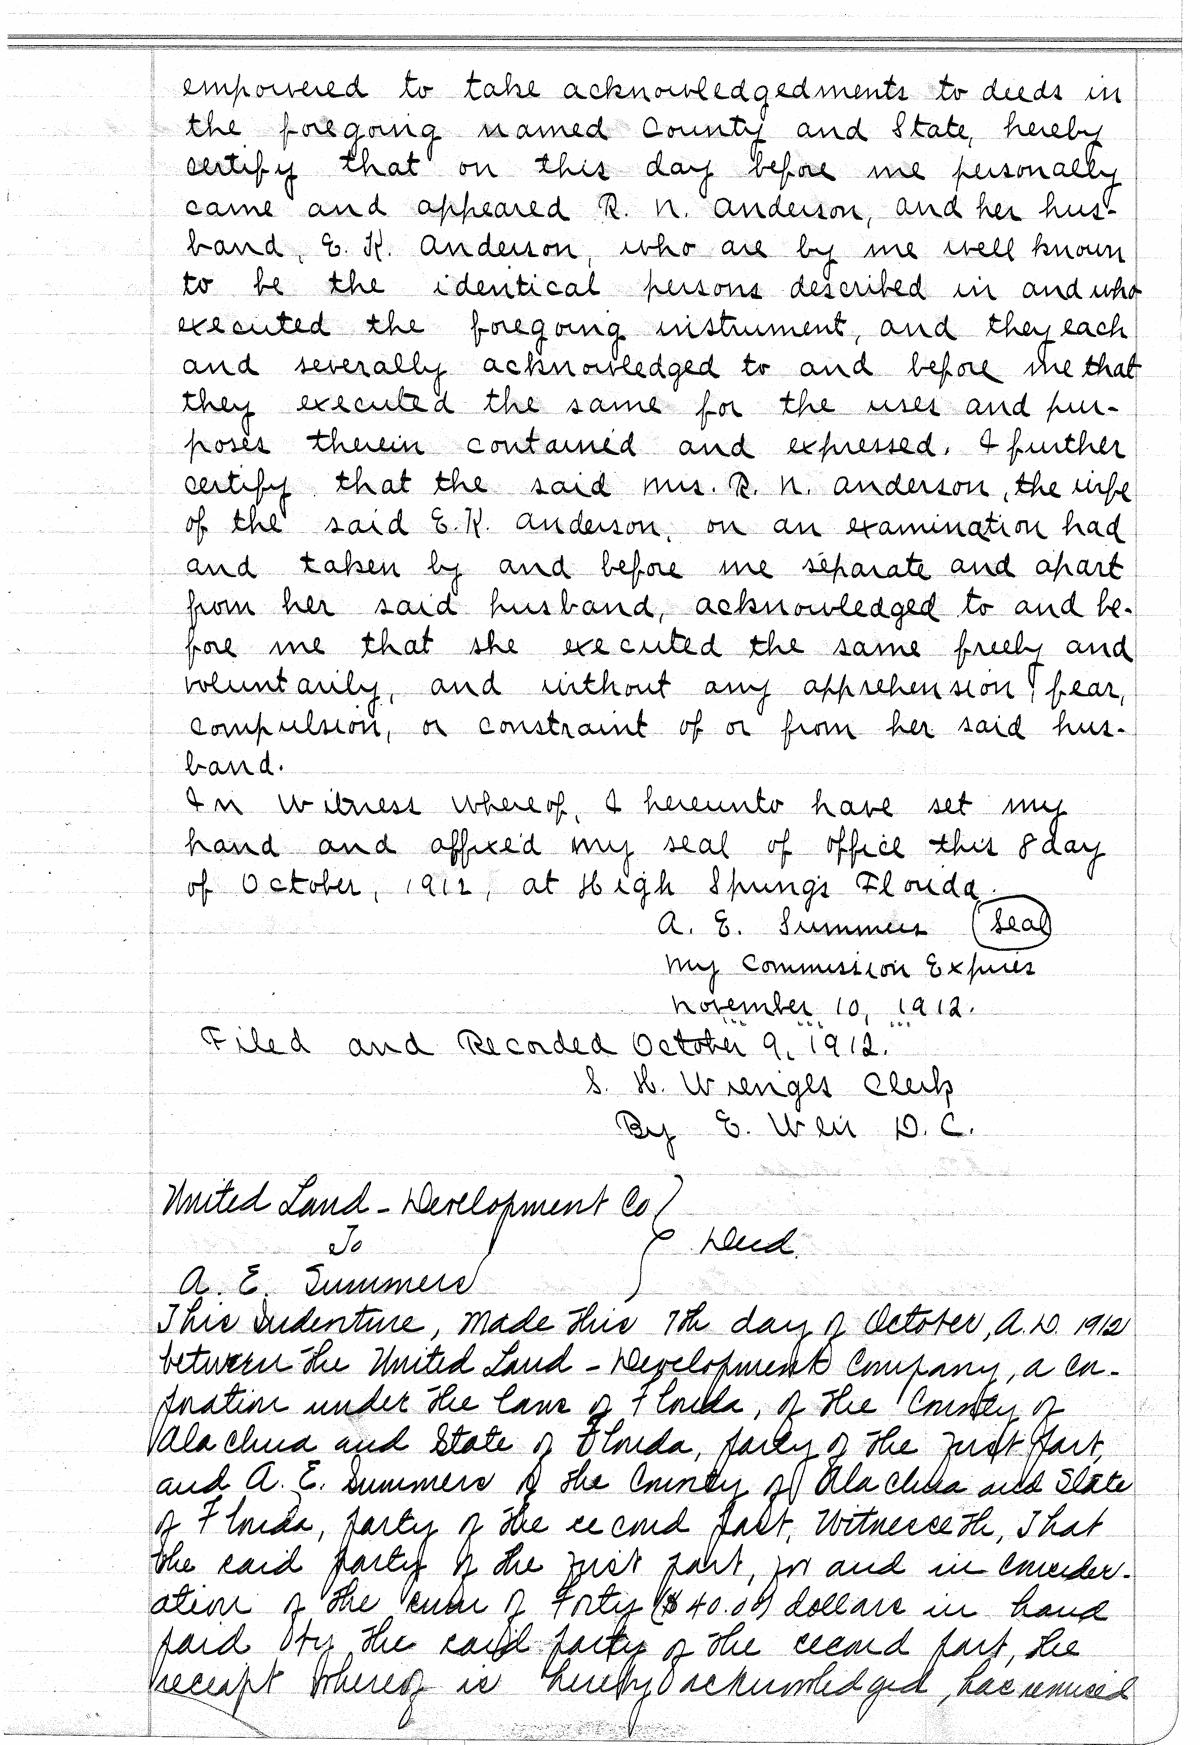 empowered to take acknowledgedments to deeds in
the foregoing named County and State, hereby
certify that on this day before me personally
came and appeared R. N. Anderson, and her hus-
band, E. K. Anderson, who are by me well known
to be the identical persons described in and who
executed the foregoing instrument, and they each
and severally acknowledged to and before me that
they executed the same for the uses and pur-
poses therein contained and expressed. I further
certify that the said Mrs. R. N. Anderson, the wife
of the said E. K. Anderson, on an examination had
and taken by and before me separate and apart
from her said husband, acknowledged to and be-
fore me that she executed the same freely and
voluntarily, and without any apprehension, fear,
compulsion, or constraint of or from her said hus-
band.
In Witness Whereof, I hereunto have set my
hand and affixed my seal of office this 8 day
of October, 1912, at High Springs Florida.
A. E. Summers (Seal)
My Commission Expires
November 10, 1912.
Filed and Recorded October 9, 1912.
S. H. Wienges Clerk
By E. Weir D. C.
United Land - Development Co
To Deed.
A. E. Summers
This Indenture, Made this 7th day of October, A. D. 1912
between the United Land - Development Company, a cor-
poration under the laws of Florida, of the County of
Alachua and State of Florida, party of the first part,
and A. E. Summers of the County of Alachua and State
of Florida, party of the second part, Witnesseth, That
the said party of the first part, for and in consider-
ation of the sum of Forty ($40.00) dollars in hand
paid by the said party of the second part, the
receipt whereof is hereby acknowledged, has remised